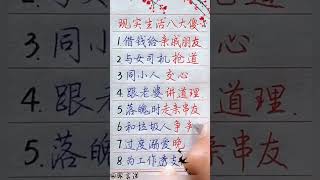 现实生活八大傻
1.借钱给亲戚朋友
2.与女司机抢道
3.同小人交心
4.跟老婆讲道理
5.落魄时走亲串友
6.和垃圾人争
7.过度溺爱晚
8.为工作透支